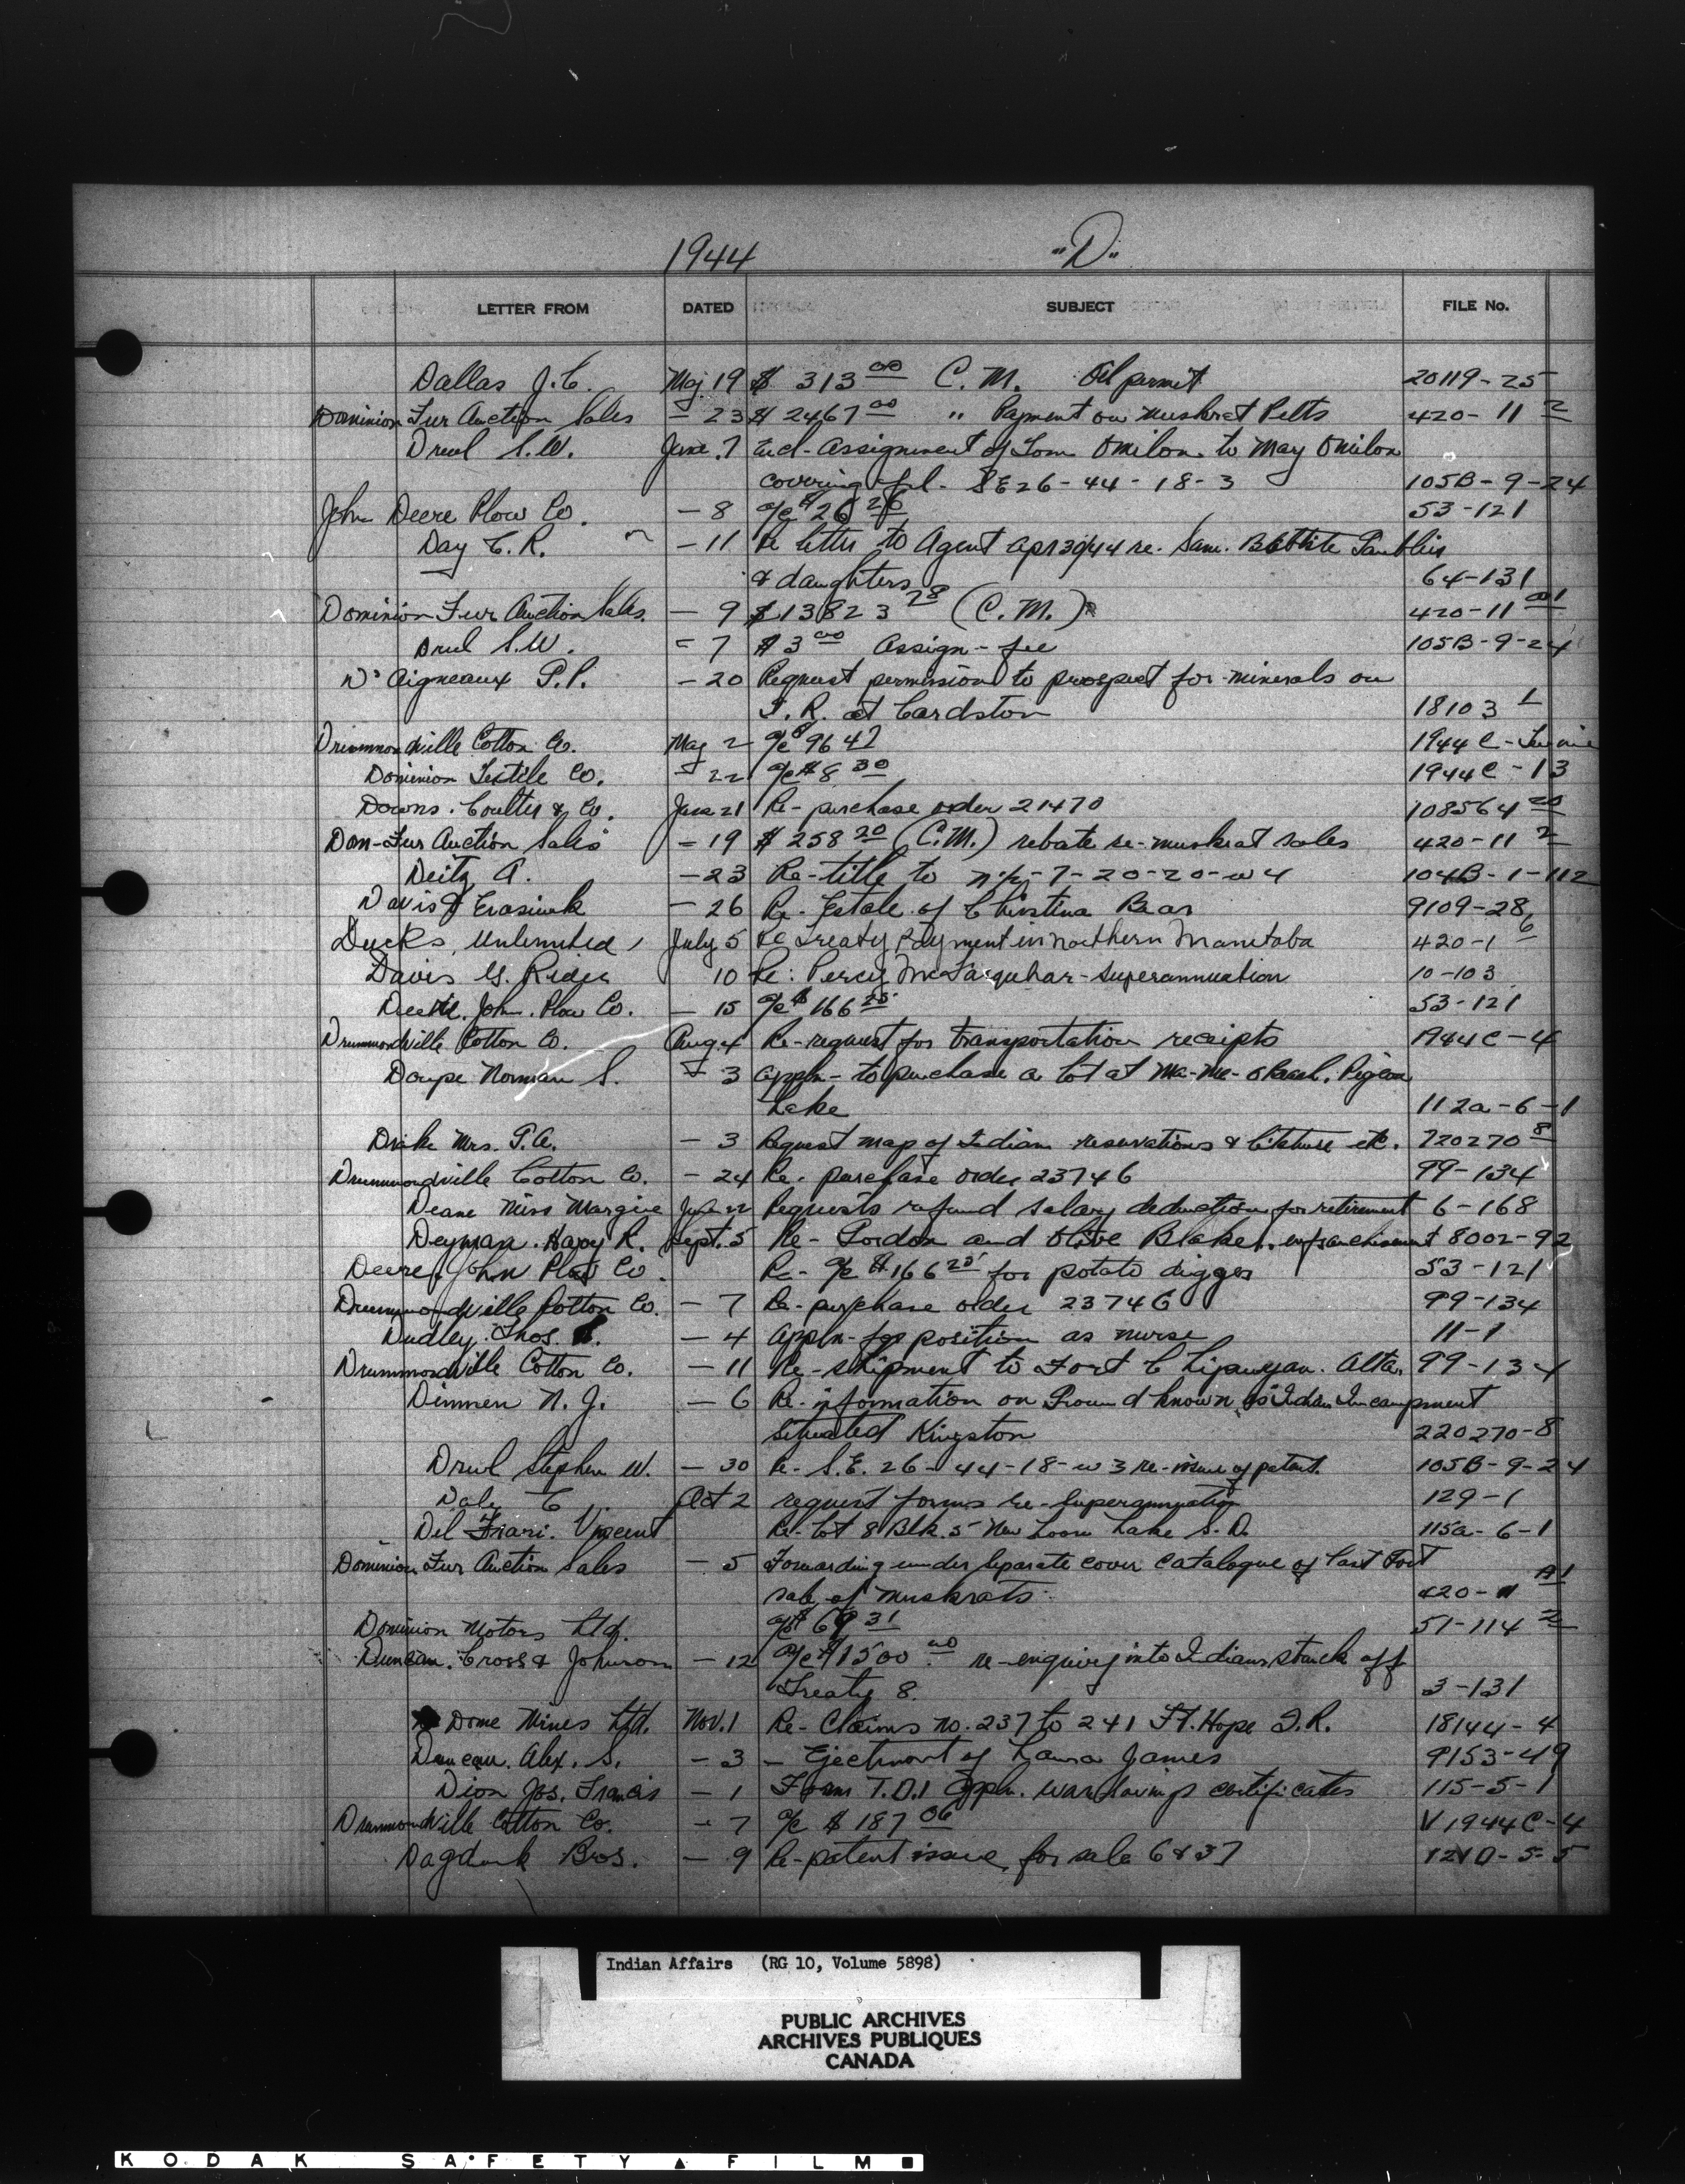 1944 "D"
LETTER FROM DATED SUBJECT FILE No.
Dallas J.C. May 19 $ 313 00 C.M. Oil permit 20119-25
Dominion Fur Auction Sales - 23 $ 2467 00 " Payment on muskrat Pelts 420-11 2
Drul S.W. June 7 Encl-Assignment of Tom Omilon to May Omilon
covering SE26-44-18-3 105B-9-24
John Deere Plow Co. - 8 a/c $26 26 53-121
Day C.R. - 11 Re letter to Agent Apr 30/44 re. Sam.
& daughters 64-131
Dominion Fur Auction Sales - 9 $13823 28 (C.M.) 420-11
Drul S.W. - 7 $3 00 Assign-fee 105B-9-24
D'Aigneaux P.P. - 20 Request permission to prospect for minerals on
I.R. at Cardston 18103 1
Drummondville Cotton Co. May 2 a/c $96 47 1944C-
Dominion Textile Co. - 22 a/c $8 30 1944C-13
Downs. Coulter & Co. June 21 Re-purchase order 21470 108564 20
Dom-Fur Auction Sales - 19 $ 258 20 (C.M.) rebate re-muskrat sales 420-11 2
Deitz A. - 23 Re-title to 7-20-20-w4 104B-1-112
Davis & - 26 Re-Estate of Christina Bear 9109-28
Ducks, Unlimited, July 5 Re Treaty Payment in northern Manitoba 420-1 6
Davis G. Ridge 10 Re: Percy McFarquhar-Superannuation 10-103
Deere. John. Plow Co. - 15 a/c $166 25 53-121
Drummondville Cotton Co. Aug 4 Re-request for transportation receipts 1944C-4
Doupe Norman S. - 3 appln-to purchase a lot at Ma-Me-O Beach. Pigeon
Lake 112a-6-1
Drake Mrs. P.A. - 3 Request map of Indian reservations & etc. 220270 8
Drummondville Cotton Co. - 24 Re-purchase order 23746 99-134
Deane Miss Margie 22 Requests refund salary deduction for retirement 6-168
Deyman. Harry R. Sept. 5 Re-Gordon and Olive Blaker. enfranchisement 8002-92
Deere, John Plow Co. Re-a/c $166 25 for potato digger 53-121
Drummondville Cotton Co. - 7 Re-purchase order 23746 99-134
Dudley. Thos. - 4 appln-for position as nurse 11-1
Drummondville Cotton Co. - 11 Re-shipment to Fort Chipawyan. Alta. 99-134
Dinmen N.J. - 6 Re-information on Ground known as Indian Incampment
situated Kingston 220270-8
Drul Stephen W. - 30 Re-S.E. 26-44-18-w3 re-issue of patent. 105B-9-24
Daly C. Oct 2 request forms re-Superannuation 129-1
Del Frari. Vincent Re-Lot 8 Blk. 5 New Loon Lake S.D. 115a-6-1
Dominion Fur Auction Sales - 5 Forwarding under separate cover catalogue of last
sale of muskrats 420-11 A1
Dominion Motors Ltd. a/c $69 31 51-114 2
Duncan. Cross & Johnson - 12 a/c $1500 00 re-enquiry into Indians struck off
Treaty 8. 3-131
Dome Mines Ltd. Nov. 1 Re-Claims no. 237 to 241 Ft. Hope I.R. 18144-4
Duncan. Alex. S. - 3 - Ejectment of Laura James 9153-49
Dion Jos. Francis - 1 Form T.D.1 appln. war savings certificates 115-5-1
Drummondville Cotton Co. - 7 a/c $ 187 06 V1944C-4
Bros. - 9 Re-patent issue, for sale 6837 121D-5-5
Indian Affairs (RG 10, Volume 5898)
PUBLIC ARCHIVES
ARCHIVES PUBLIQUES
CANADA
KODAK SAFETY ▲ FILM ■